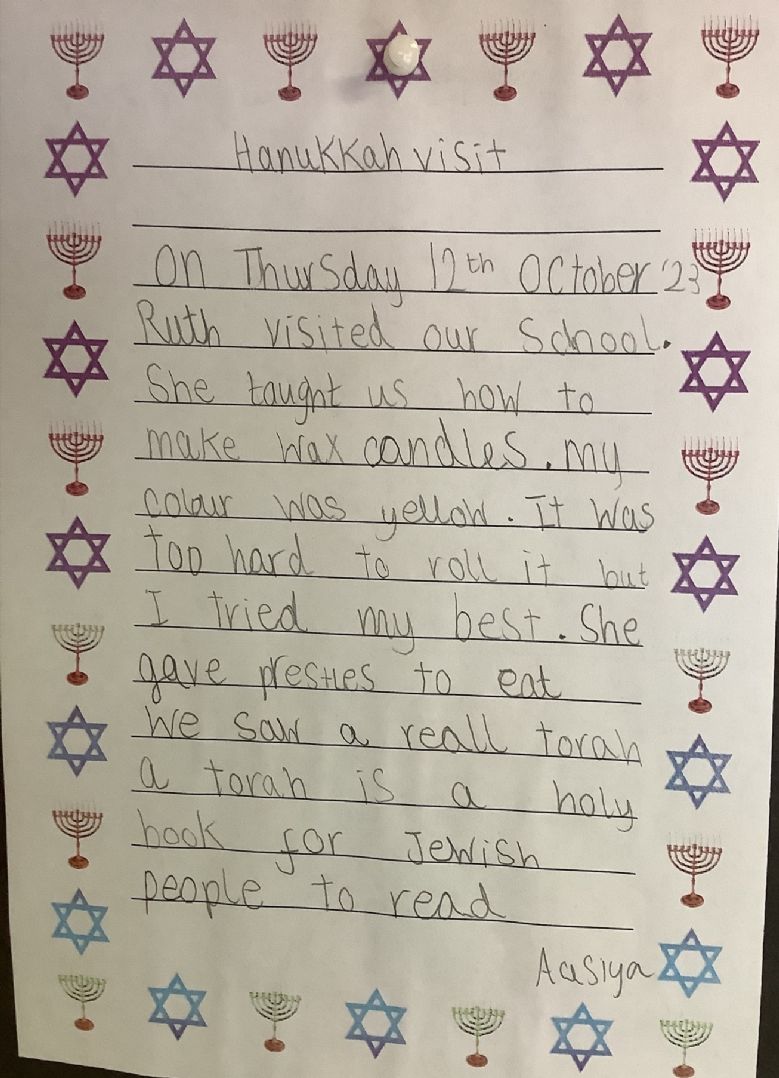 Hanukkah visit
On Thursday 12th October '23
Ruth visited our School.
She taught us how to
make wax candles. my
colour was yellow. It was
too hard to roll it but
I tried my best. She
gave prestles to eat
We saw a reall torah
a torah is a holy
book for Jewish
people to read
Aasiya